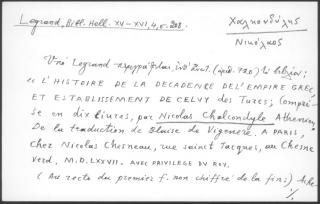 Legrand, Bibl. Hell. XV–XVI, 4, σ. 208.
Χαλκονδύλης
Νικόλαος
Ὑπὸ Legrand
« L'HISTOIRE DE LA DECADENCE DE L'EMPIRE GREC,
ET ESTABLISSEMENT DE CELVY des Turcs; Compri-
se en dix livres, par Nicolas Chalcondyle Athenien,
De la traduction de Blaise de Vigenere. A PARIS,
Chez Nicolas Chesneau, rue sainct Jacques, au Chesne
verd, M.D.LXXVII. AVEC PRIVILEGE DV ROY.
(Au recto du premier f. non chiffré de la fin:)